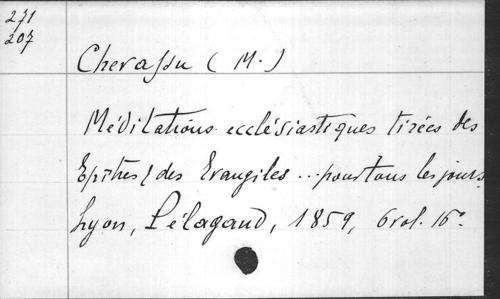 271
207
Chevassu (M.)
Méditations ecclésiastiques tirées des
Epitres & des Evangiles ... pour tous les jours
Lyon, Pélagaud, 1859, 6 vol. 16°